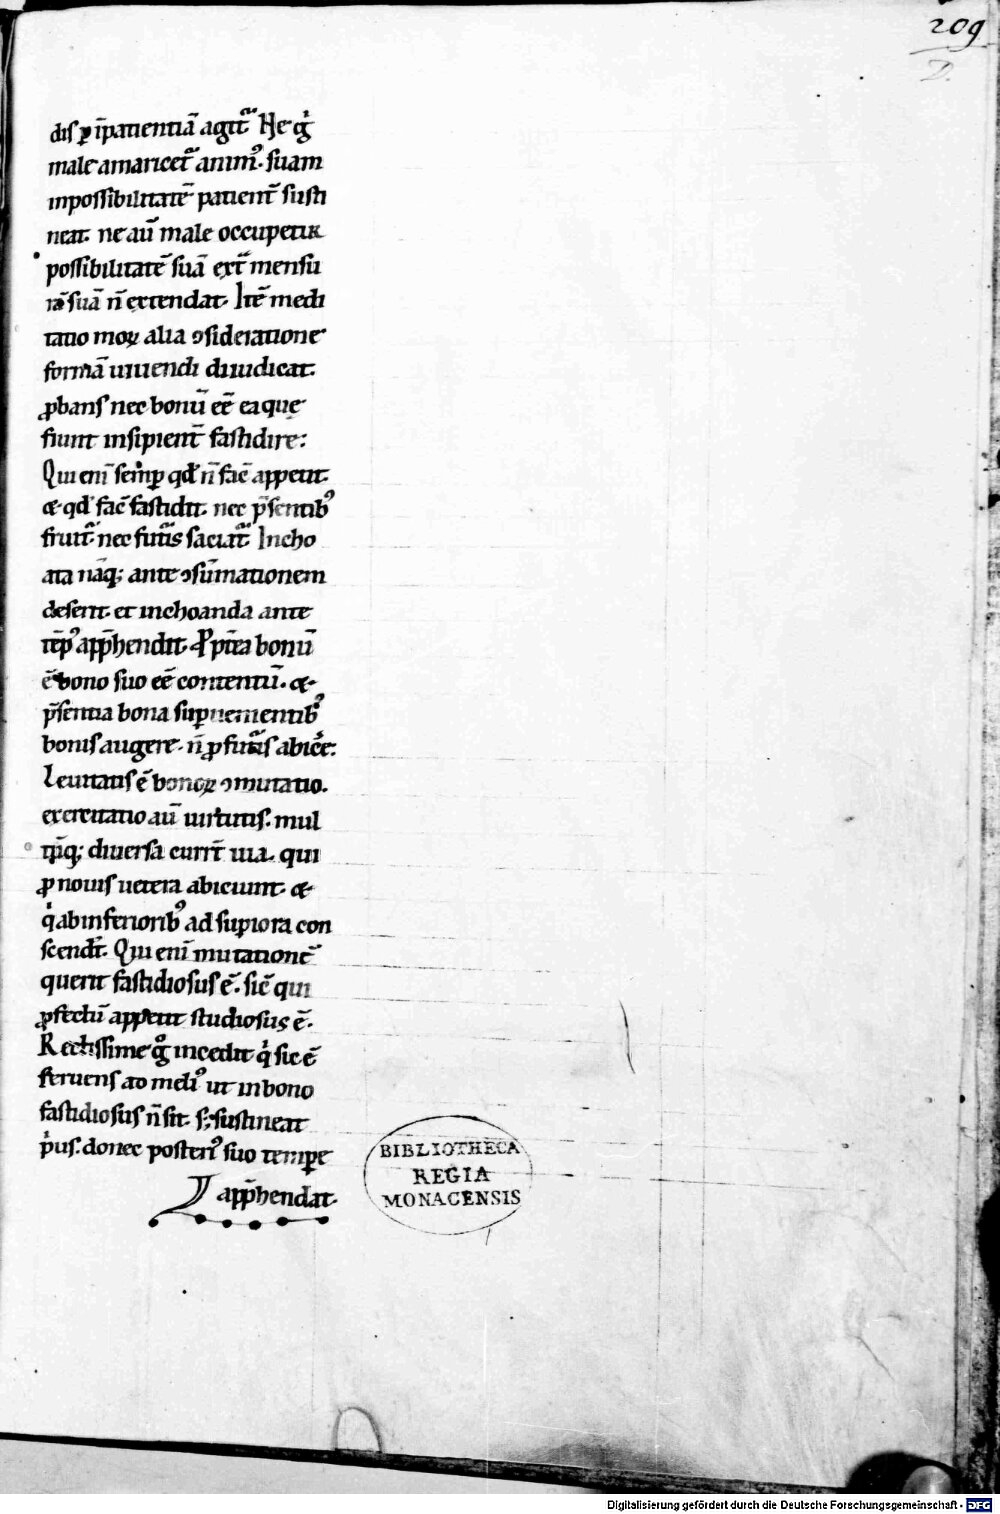 209
D.
diſ ꝑ ı̄patientiā agit᷑. Ne gͥ
male amaricet᷑ animꝰ. suam
inpoſſibilitatē patient᷑ suſti
neat. ne aū male occupetur
poſſibilitatē ſuā ext᷑ mensu
rā ſuā n̄ extendat. Itē medi
tatio moꝝ alia ꝯsideratione
formā uiuendi diiudicat.
ꝓbanſ nec bonū eē ea que
fiunt insipient᷑ faſtidire:
Qui eni̅ ſemꝑ qd̕ n̄ fac̄ appetit.
& qd̕ fac̄ faſtidit. nec p̄ſentibꝰ
fruit᷑. nec futᷓis ſaciat᷑. Incho
ata nāq; ante ꝯſūmationem
deſerit. et inchoanda ante
tēpꝰ app̄hendit. Ꝓpt̄ea bonū
ē bono ſuo eē contentū. &
p̄ſentia bona suꝑuenientibꝰ
boniſ augere. n̄ ꝓ futᷓiſ abic̄e:
Leuitatiſ ē bonoꝝ ꝯmutatio.
exercitatio aū uirtutiſ. mul
tiq̄; diuerſa currt̄ uia. qui
ꝓ nouiſ uetera abiciunt. &
qͥ ab inferioribꝰ ad suꝑiora con
ſcendt̄. Qui eni̅ mutationē
querit faſtidioſuſ ē. ſic̄ qui
ꝓfectū appetit ſtudioſuſ ē.
Rectiſſime gͦ incedit qͥ ſic ē
feruenſ ad meliꝰ ut in bono
faſtidioſuſ n̄ ſit. ſ; ſuſtineat
pͥuſ. donec poſteriꝰ ſuo tempe
app̄hendat.
BIBLIOTHECA
REGIA
MONACENSIS
Digitalisierung gefördert durch die Deutsche Forschungsgemeinschaft - DFG